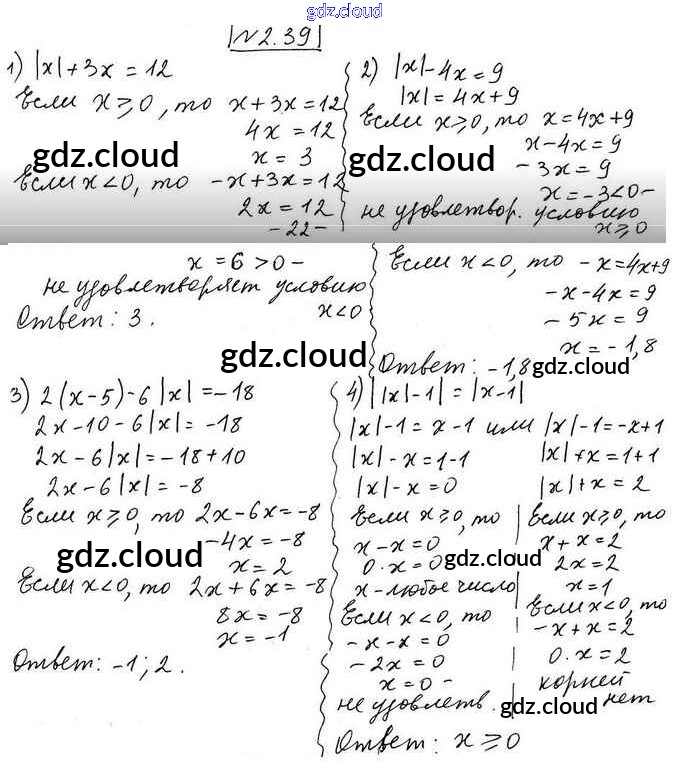 gdz.cloud
№2.39
1) |x|+3x=12
Если x⩾0, то x+3x=12
4x=12
gdz.cloud
x=3
Если x<0, то -x+3x=12
2x=12
-22-
x=6>0-
не удовлетворяет условию
x<0
Ответ: 3.
2) |x|-4x=9
|x|=4x+9
Если x⩾0, то x=4x+9
x-4x=9
gdz.cloud
-3x=9
x=-3<0-
не удовлетвор. условию
x⩾0
Если x<0, то -x=4x+9
-x-4x=9
-5x=9
x=-1,8
gdz.cloud
Ответ: -1,8
gdz.cloud
3) 2(x-5)-6|x|=-18
2x-10-6|x|=-18
2x-6|x|=-18+10
2x-6|x|=-8
Если x⩾0, то 2x-6x=-8
-4x=-8
gdz.cloud
x=2
Если x<0, то 2x+6x=-8
8x=-8
x=-1
Ответ: -1; 2.
4) ||x|-1|=|x-1|
|x|-1=x-1 или |x|-1=-x+1
|x|-x=1-1
|x|-x=0
Если x⩾0, то
x-x=0
0·x=0
gdz.cloud
x-любое число
Если x<0, то
-x-x=0
-2x=0
x=0-
не удовлетв.
|x|+x=1+1
|x|+x=2
Если x⩾0, то
x+x=2
2x=2
x=1
Если x<0, то
-x+x=2
0·x=2
корней
нет
gdz.cloud
Ответ: x⩾0